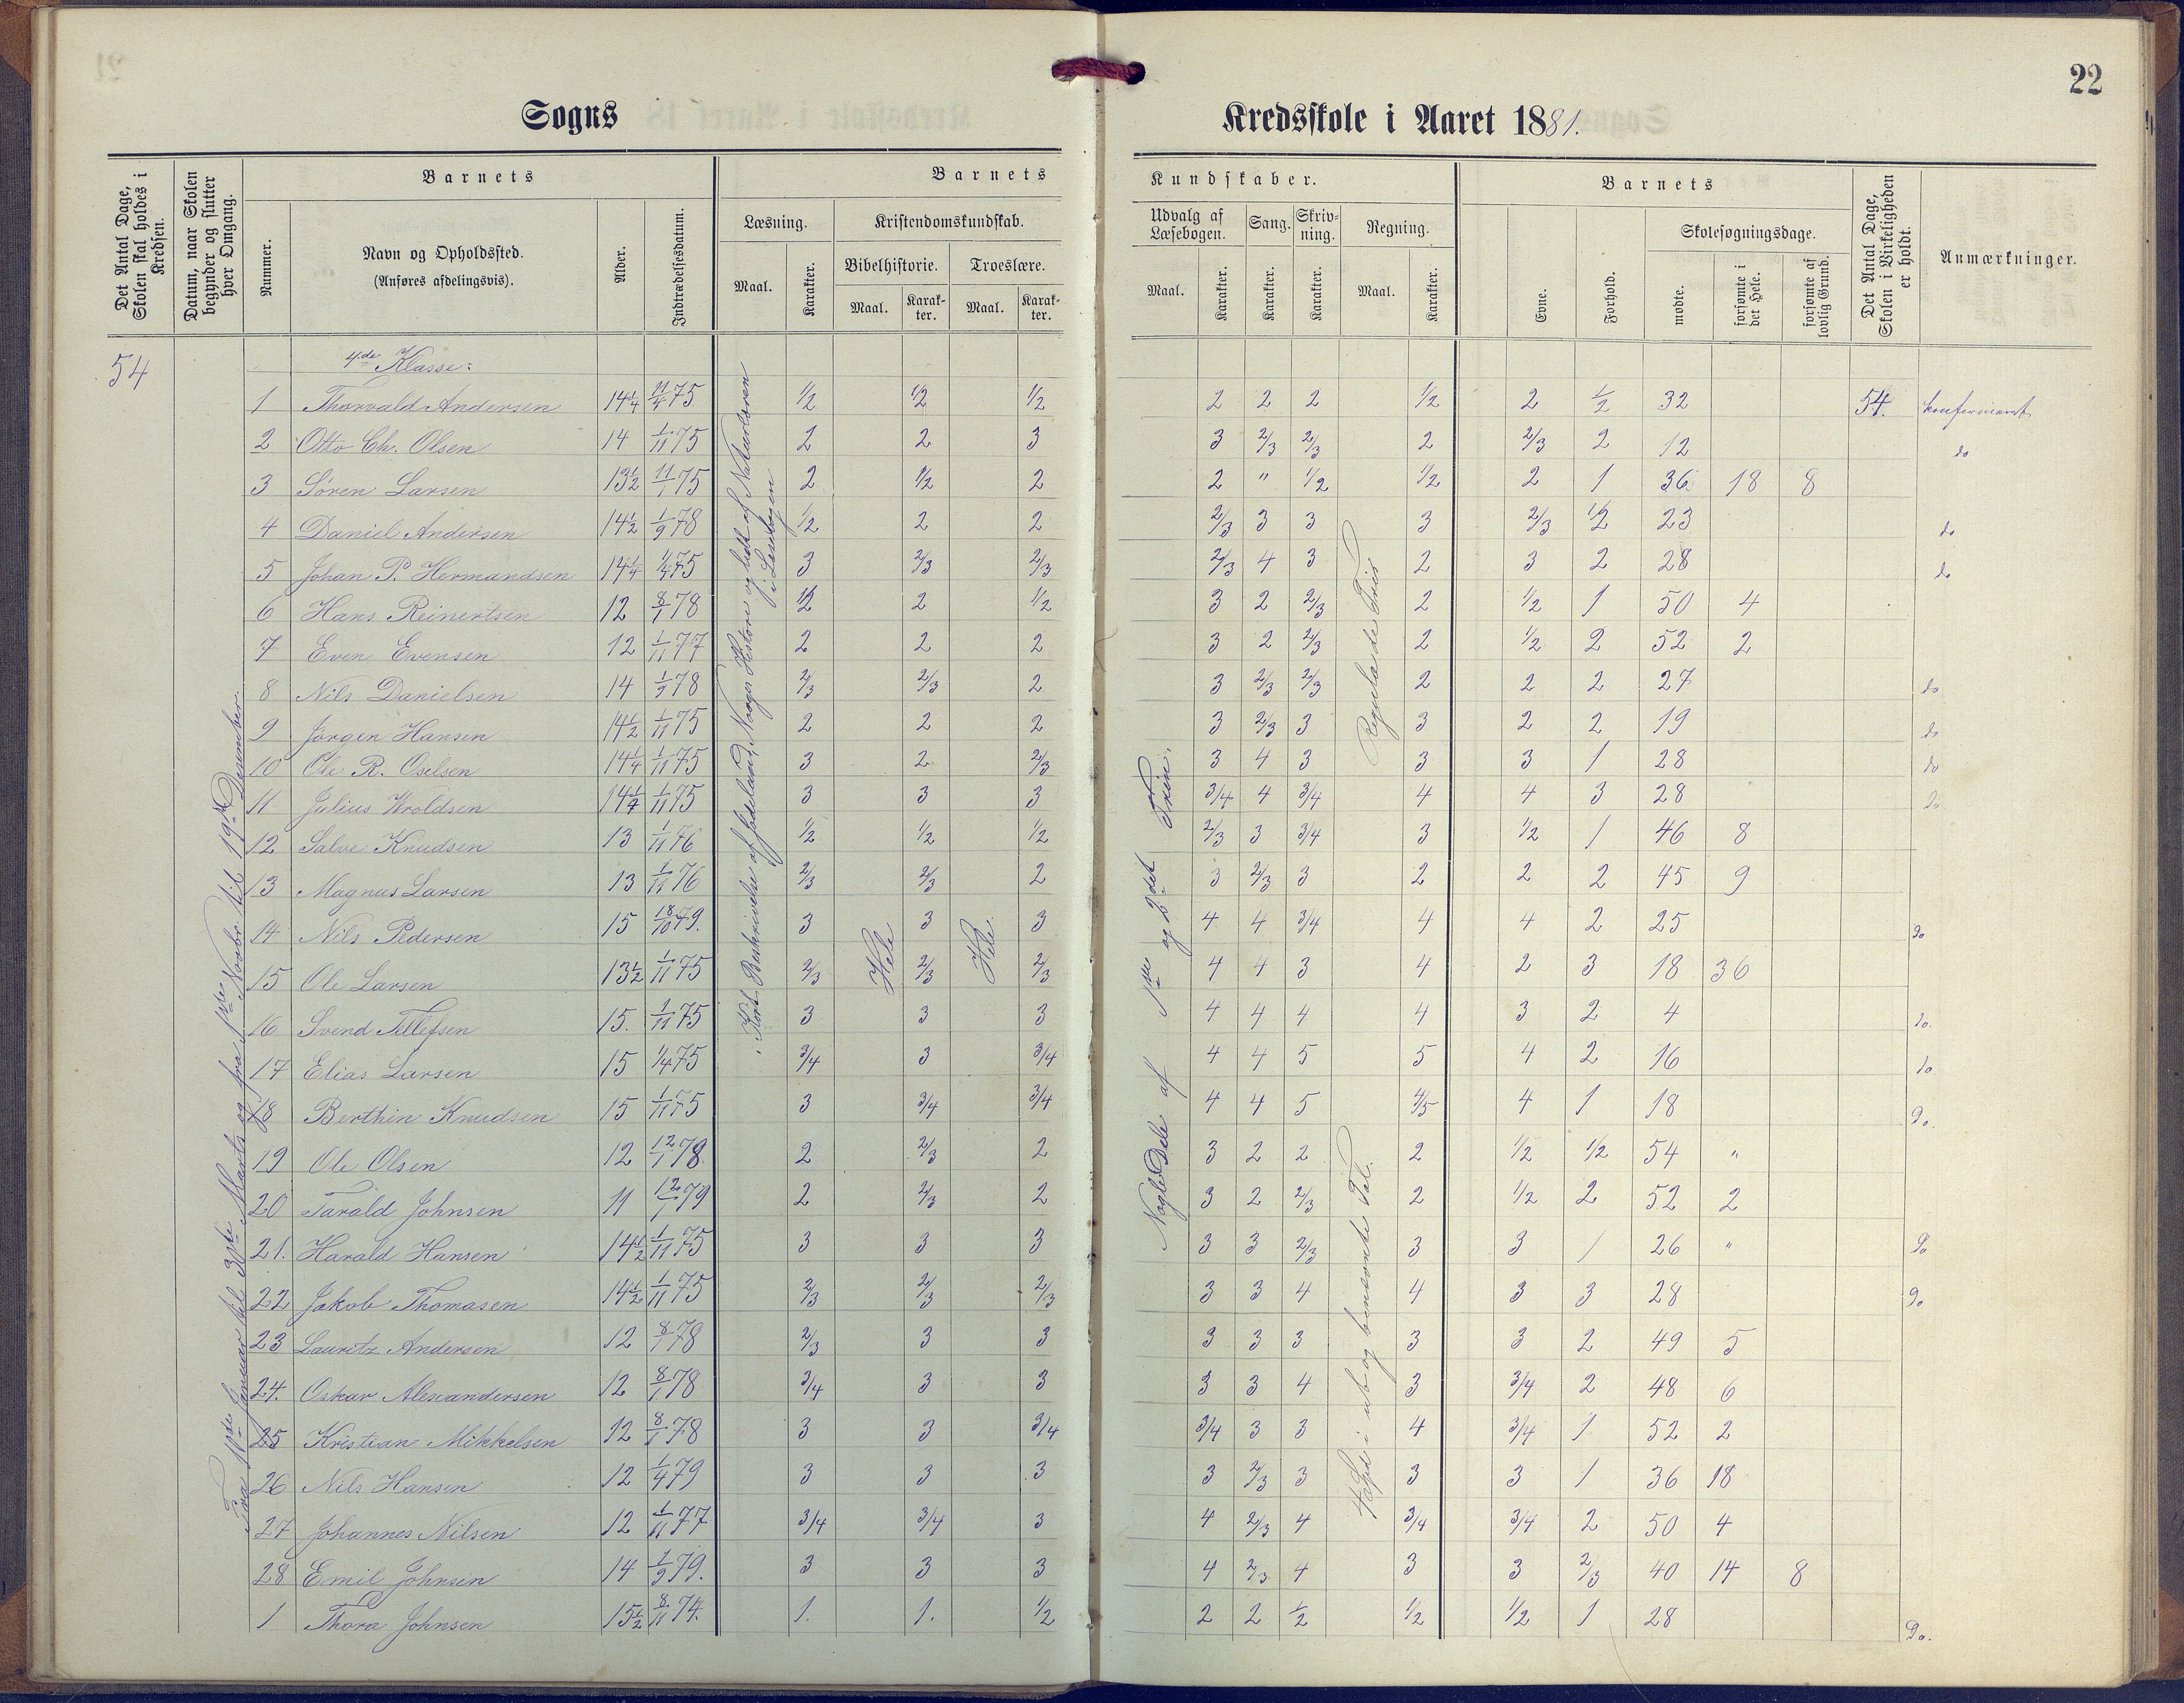 22
Sogns
Kredsskole i Aaret 1881.
Det Antal Dage, Skolen skal holdes i Kredsen.
Datum, naar Skolen begynder og slutter hver Omgang.
Barnets
Nummer.
Navn og Opholdssted.
(Anføres afdelingsvis).
Alder.
Indtrædelsesdatum.
Barnets
Læsning.
Maal.
Karakter.
Kristendomskundskab.
Bibelhistorie.
Maal.
Karakter.
Troeslære.
Maal.
Karakter.
Kundskaber.
Udvalg af Læsebogen.
Maal.
Karakter.
Sang.
Karakter.
Skrivning.
Karakter.
Regning.
Maal.
Karakter.
Barnets
Evne.
Forhold.
Skolesøgningsdage.
mødte.
forsømte i det Hele.
forsømte af lovlig Grund.
Det Antal Dage, Skolen i Virkeligheden er holdt.
Anmærkninger.
54
4de Klasse:
1 Thorvald Andersen 14 1/4 11/4 75 1/2 1/2 1/2 2 2 2 1/2 2 1/2 32 54. konfirmeret
2 Otto Ch. Olsen 14 1/11 75 2 2 3 3 2/3 2/3 2 2/3 2 12 do
3 Sören Larsen 13 1/2 11/1 75 2 1/2 2 2 " 1/2 1/2 2 1 36 18 8
4 Daniel Andersen 14 1/2 1/9 78 1/2 2 2 2/3 3 3 3 2/3 1/2 23 do
5 Johan P. Hermandsen 14 1/4 1/4 75 3 2/3 2/3 2/3 4 3 2 3 2 28 do
6 Hans Reinertsen 12 8/1 78 1/2 2 1/2 3 2 2/3 2 1/2 1 50 4
7 Even Evensen 12 1/11 77 2 2 2 3 2 2/3 2 1/2 2 52 2
8 Nils Danielsen 14 1/9 78 2/3 2/3 2 3 2/3 2/3 2 2 2 27 do
9 Jörgen Hansen 14 1/2 1/11 75 2 2 2 3 2/3 3 3 2 2 19 do
10 Ole R. Oselsen 14 1/4 1/11 75 3 2 2/3 3 4 3 3 3 1 28 do
11 Julius Wroldsen 14 1/4 1/11 75 3 3 3 3/4 4 3/4 4 4 3 28 do
12 Salve Knudsen 13 1/11 76 1/2 1/2 1/2 2/3 3 3/4 3 1/2 1 46 8
13 Magnus Larsen 13 1/11 76 2/3 2/3 2 3 2/3 3 2 2 2 45 9
14 Nils Pedersen 15 18/10 79. 3 3 3 4 4 3/4 4 4 2 25 do
15 Ole Larsen 13 1/2 1/11 75 2/3 2/3 2/3 4 4 3 4 2 3 18 36
16 Svend Tellefsen 15. 1/11 75 3 3 3 4 4 4 4 3 2 4 do.
17 Elias Larsen 15 1/4 75 3/4 3 3/4 4 4 5 5 4 2 16 do
18 Berthin Knudsen 15 1/11 75 3 3/4 3/4 4 4 5 4/5 4 1 18 do.
19 Ole Olsen 12 12/1 78. 2 2/3 2 3 2 2 2 1/2 1/2 54 "
20 Tarald Johnsen 11 12/1 79 2 2/3 2 3 2 2/3 2 1/2 2 52 2
21. Harald Hansen 14 1/2 1/11 75 3 3 3 3 3 2/3 3 3 1 26 " do
22 Jakob Thomasen 14 1/2 1/11 75 2/3 2/3 2/3 3 3 4 4 3 3 28 do
23 Lauritz Andersen 12 8/1 78 2/3 3 3 3 3 3 3 3 2 49 5
24. Oskar Alexandersen 12 8/1 78 3/4 3 3 3 3 4 3 3/4 2 48 6
25 Kristian Mikkelsen 12 8/1 78 3 3 3/4 3/4 3 3 4 3/4 1 52 2
26 Nils Hansen 12 1/4 79 3 3 3 3 2/3 3 3 3 1 36 18
27 Johannes Nilsen 12 1/11 77 3/4 3/4 3 4 2/3 4 3/4 3/4 2 50 4
28 Emil Johnsen 14 1/9 79. 3 3 3 4 2/3 4 3 3 2/3 40 14 8
1 Thora Johnsen 15 1/2 8/11 74. 1. 1. 1/2 2 2 1/2 1/2 1/2 1 28 do.
Fra 10de Januar til 30te Marts og fra 1ste Novbr. til 19de Desember.
Kort Beskrivelse af fødeland, Norges Historie og lidt af Naturlæren i Læsebogen
Hele
Hele
Nogle Dele af 1ste og 2det Trin.
Regula de Tri
Hoved i ub og benævnte Tal.